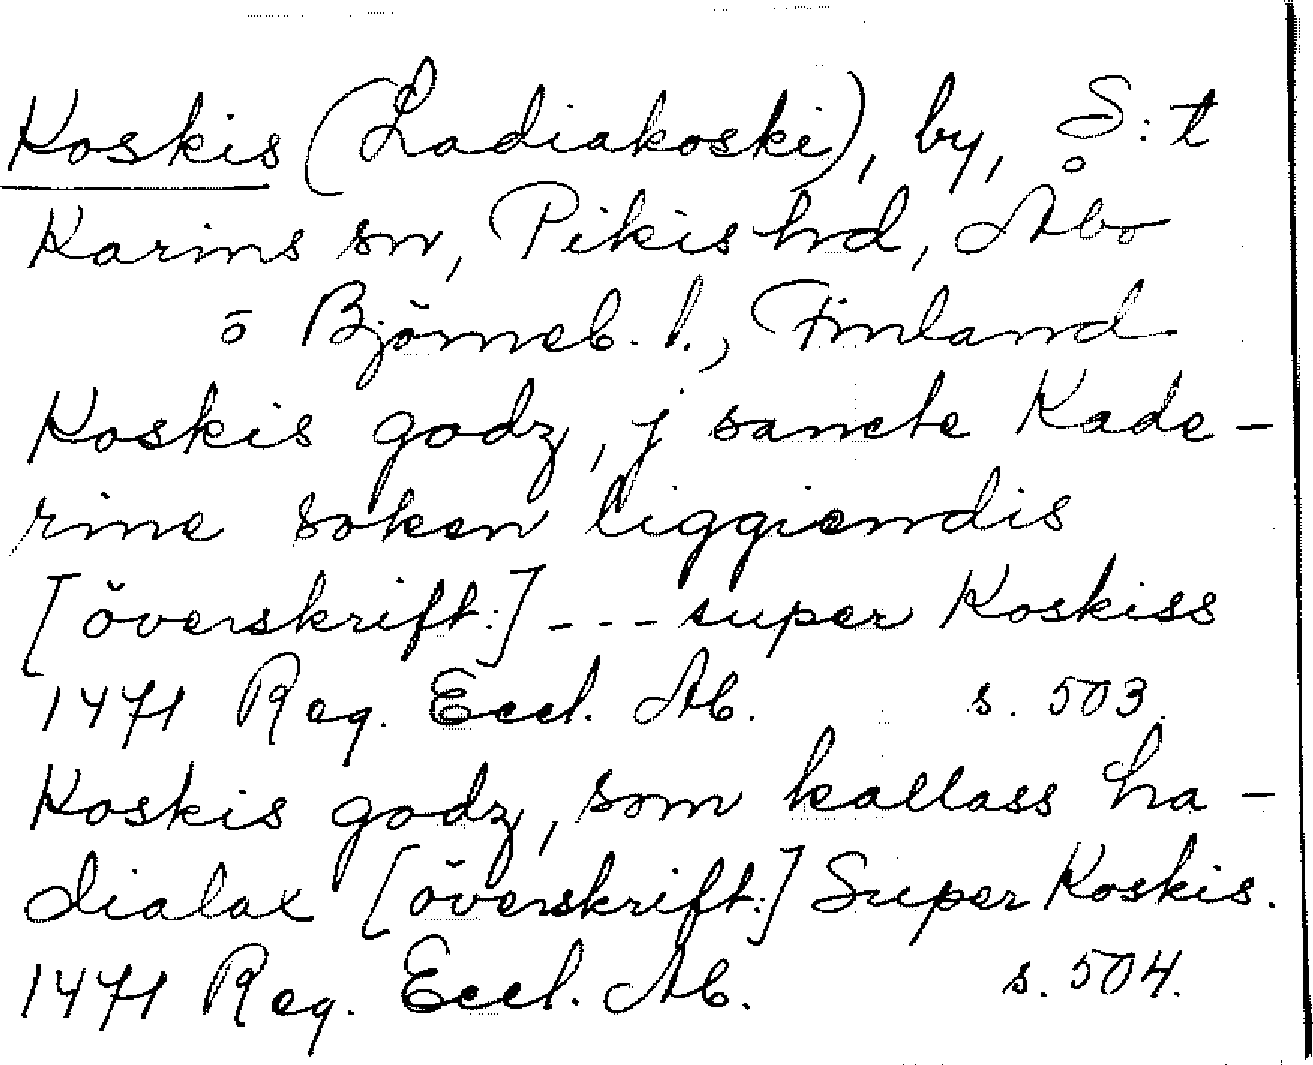 Koskis (Ladiakoski), by, S:t
Karins sn, Pikis hd, Åbo
o Björneb. l., Finland
Koskis godz, j sancte Kade-
rine soken liggiendis
[överskrift:] --- super Koskiss
1471 Reg. Eccl. Ab. s. 503.
Koskis godz, som kallass ha-
dialax [överskrift:] Super Koskis.
1471 Reg. Eccl. Ab. s. 504.